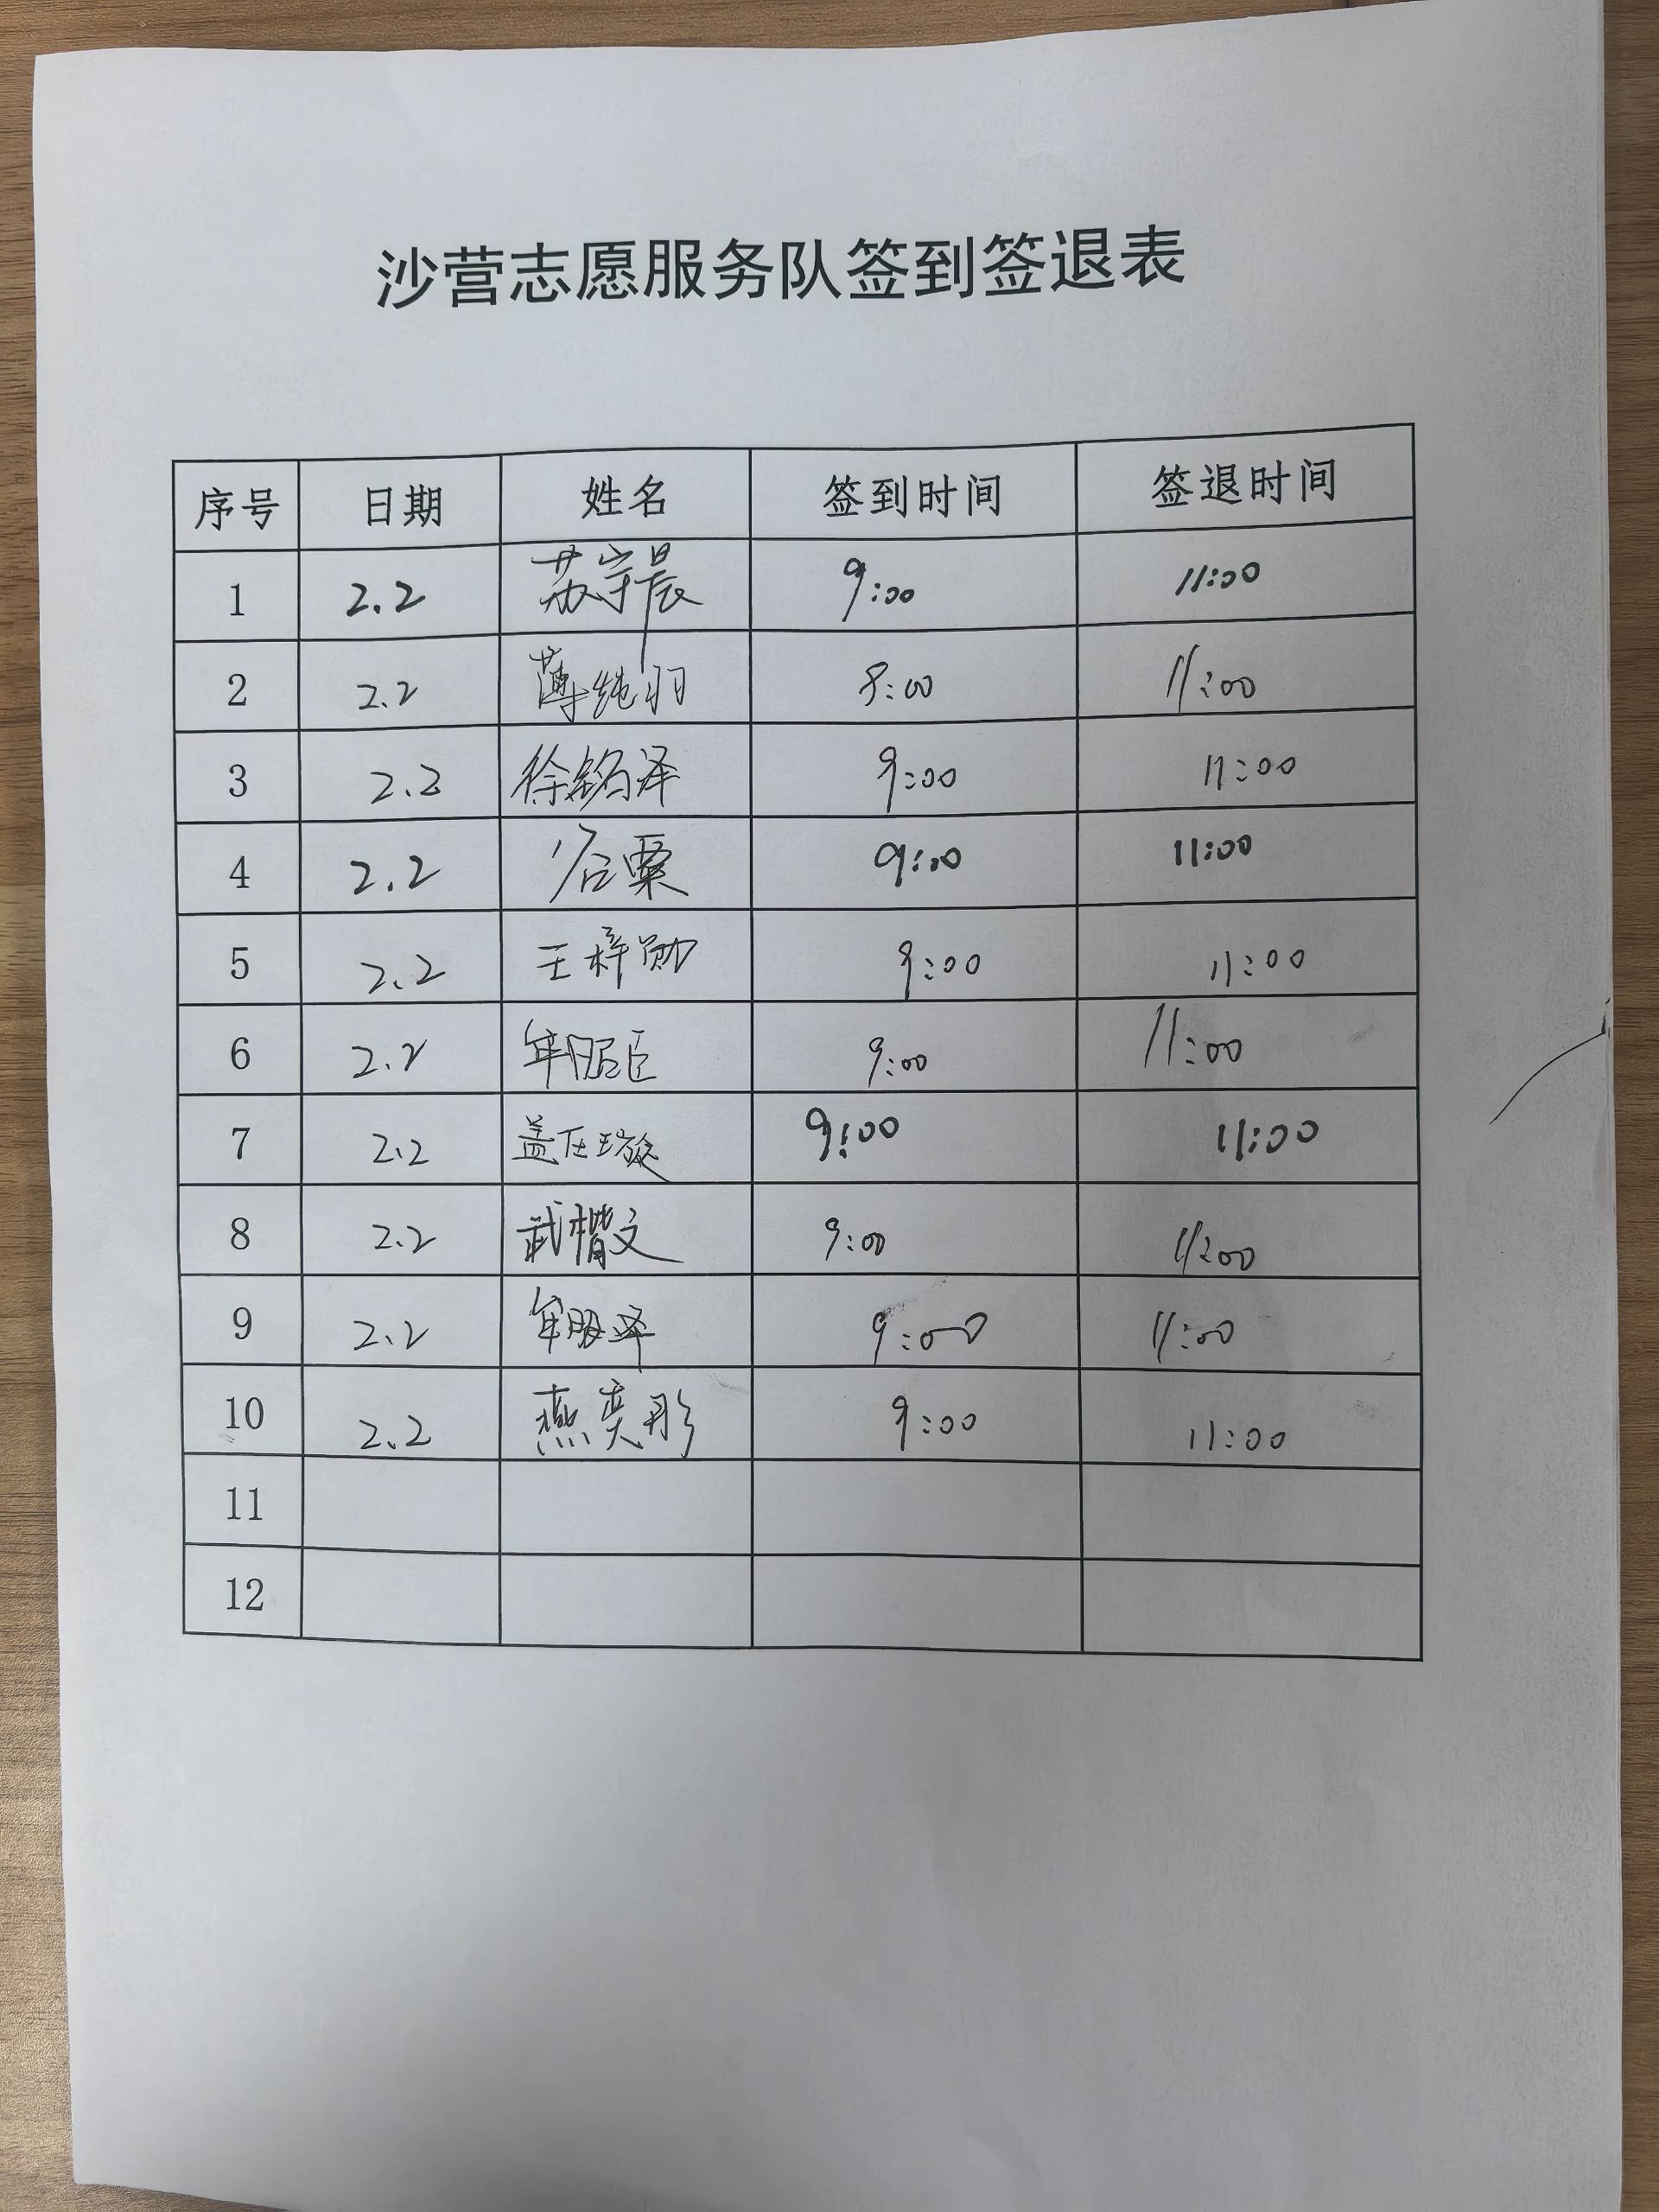 沙营志愿服务队签到签退表
序号 日期 姓名 签到时间 签退时间
1 2.2 苏宇晨 9:00 11:00
2 2.2 薄纯羽 8:00 11:00
3 2.2 徐铭泽 9:00 11:00
4 2.2 9:00 11:00
5 2.2 王梓勋 9:00 11:00
6 2.2 9:00 11:00
7 2.2 9:00 11:00
8 2.2 武楷文 9:00 11:00
9 2.2 9:00 11:00
10 2.2 燕奕彤 9:00 11:00
11
12